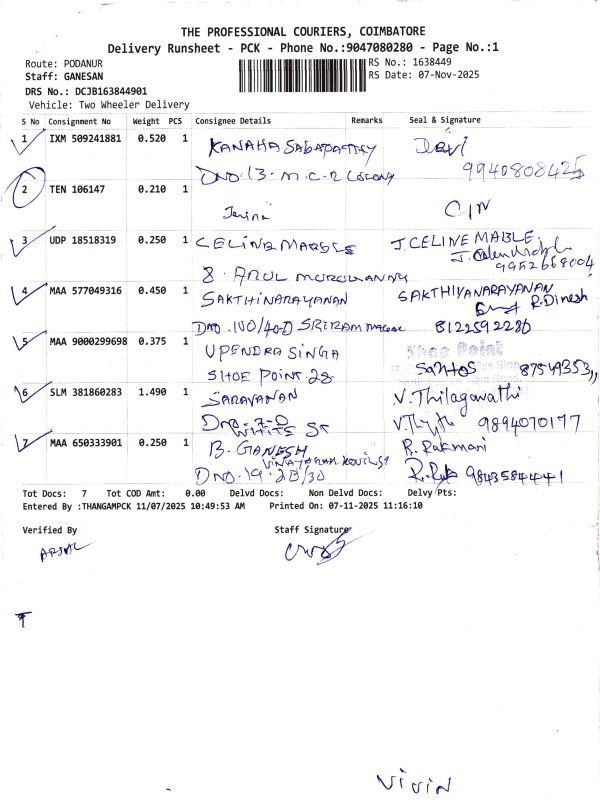 THE PROFESSIONAL COURIERS, COIMBATORE
Delivery Runsheet - PCK - Phone No.:9047080280 - Page No.:1
Route: PODANUR
RS No.: 1638449
Staff: GANESAN
RS Date: 07-Nov-2025
DRS No.: DCJB163844901
Vehicle: Two Wheeler Delivery
S No Consignment No Weight PCS Consignee Details Remarks Seal & Signature
1 IXM 509241881 0.520 1 KANAHA SABAPATHY Devi
DNO 13. M.C.R COLONY 9940808425
2 TEN 106147 0.210 1
3 UDP 18518319 0.250 1 CELINE MARBLE J. CELINE MABLE.
9952668004
8. ARUL MURUGAN
4 MAA 577049316 0.450 1 SAKTHINARAYANAN SAKTHIYANARAYANAN
R. Dinesh
DNO. 100/40-D SRIRAM 8122592280
5 MAA 9000299698 0.375 1 UPENDRA SINGH Shoe Point
SHOE POINT. 28 Santos 87549353
6 SLM 381860283 1.490 1 SARAVANAN V. Thilagavathi
DNO. 7-D 9894070177
WHITE ST
7 MAA 650333901 0.250 1 B. GANESH R. Rukmani
VINAYAGAR KOVIL ST
DNO. 19. 2B/30 9843584441
Tot Docs: 7 Tot COD Amt: 0.00 Delvd Docs: Non Delvd Docs: Delvy Pts:
Entered By :THANGAMPCK 11/07/2025 10:49:53 AM Printed On: 07-11-2025 11:16:10
Verified By Staff Signature
vivin